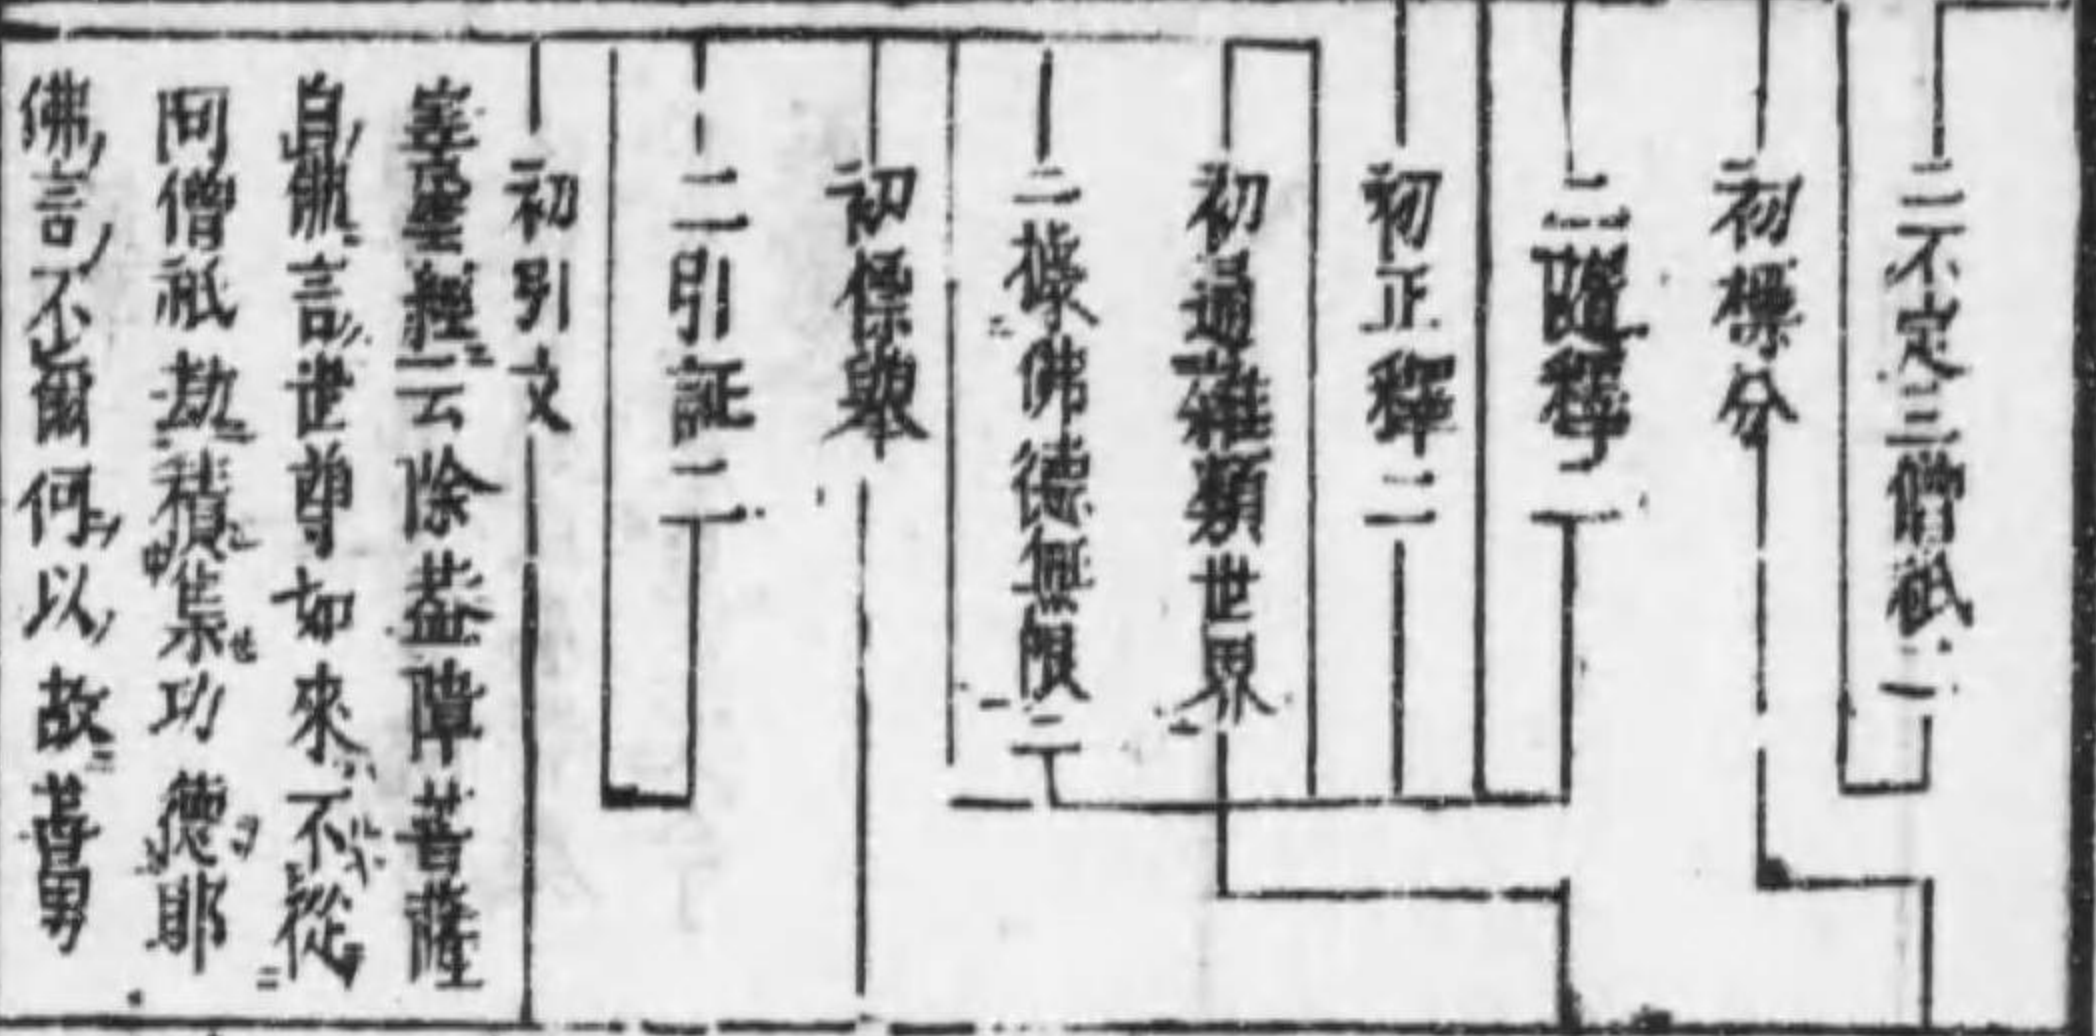 二不定三僧祇二
初標分
二隨釋二
初正釋二
初通雜類世界
二據佛德無限二
初標舉
二引証二
初引文
經云除蓋障菩薩
白佛言世尊如來不從
阿僧祇劫積集功德耶
佛言不爾何以故善男